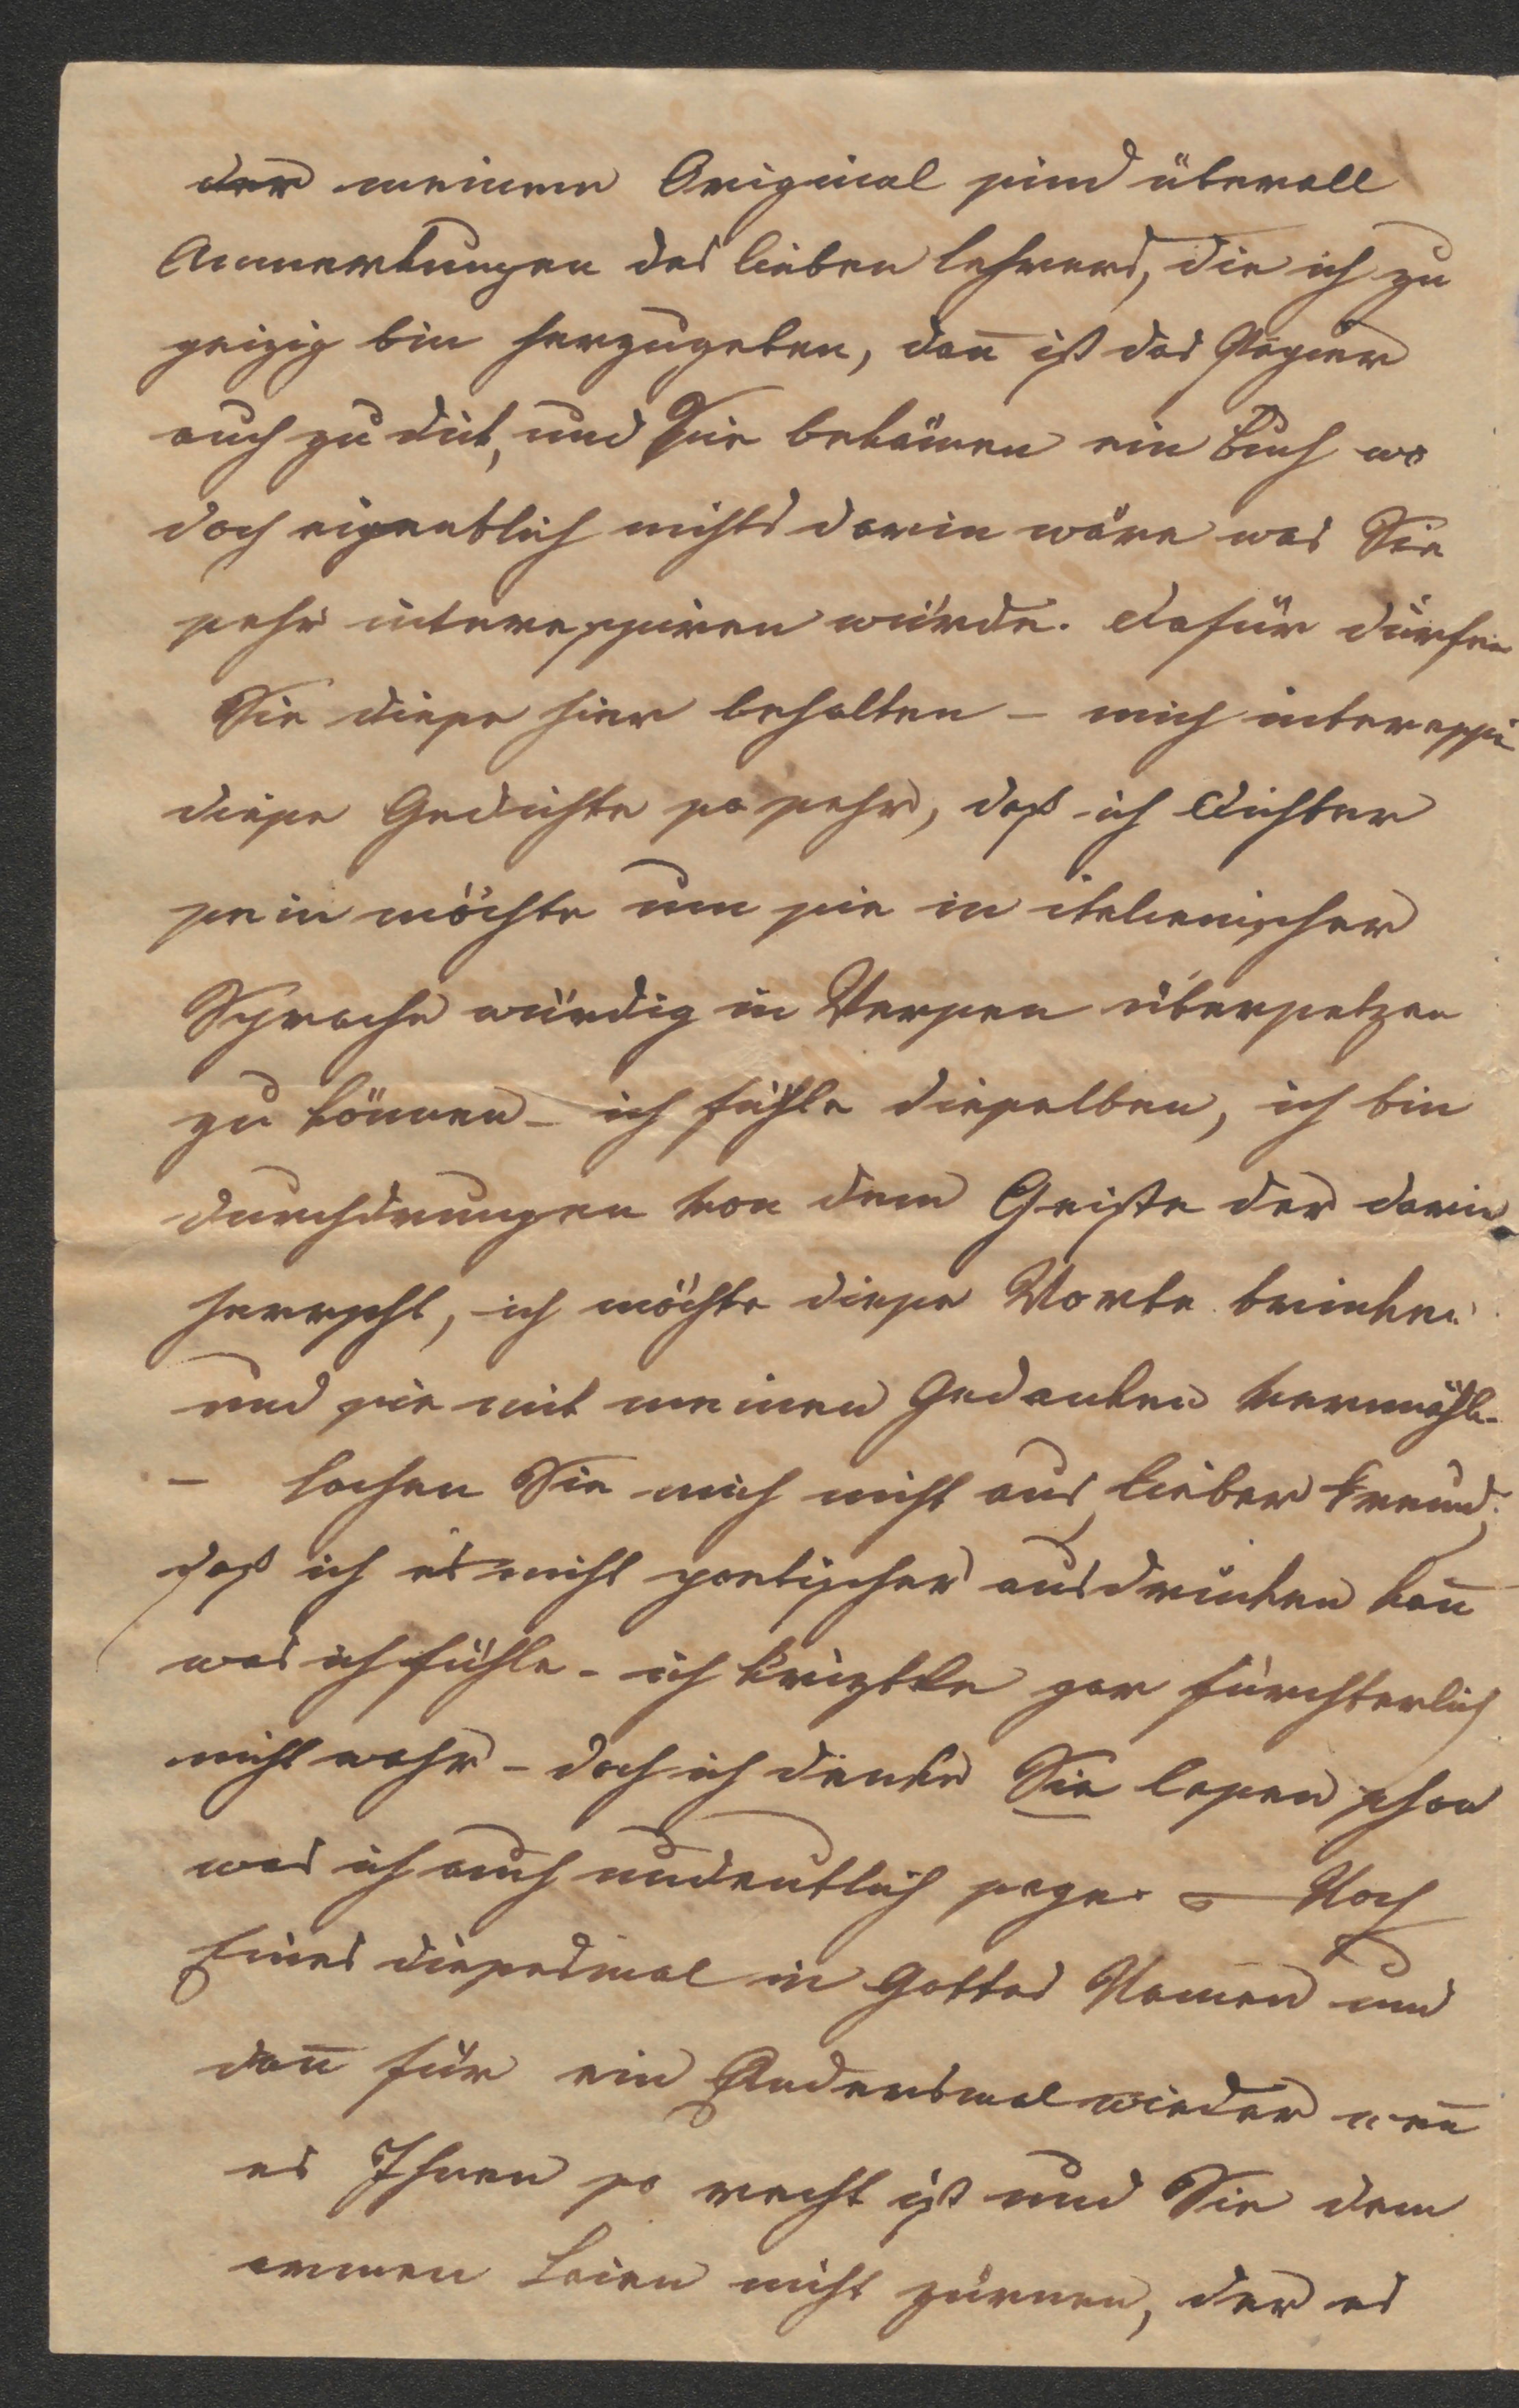 der meinem Original sind überall
Anmerkungen des lieben Lehrers, die ich zu
geizig bin herzugeben, dan̅ ist das Papier
auch zu dick, und Sie bekämen ein Buch wo
doch eigentlich nichts darin wäre was Sie
sehr interessiren würde. Dafür dürfen
Sie diese hier behalten – mich interessi
diese Gedichte so sehr, daß ich Dichter
sein möchte um sie in italienischer
Sprache würdig in Versen übersetzen
zu können – ich fühle dieselben, ich bin
durchdrungen von dem Geiste der darin
herrscht, ich möchte diese Worte trinken
und sie mit meinen Gedanken vermähle
– lachen Sie mich nicht aus, lieber Freund,
daß ich es nicht poetischer ausdrücken kan̅
was ich fühle – ich kritzle gar fürchterlich
nicht wahr – doch ich denke Sie lesen schon
was ich auch undeutlich sage. – Noch
Eines diesesmal in Gottes Namen und
dan̅ für ein Andersmal wieder wen̅
es Ihnen so recht ist und Sie dem
armen Laien nicht zürnen, der es